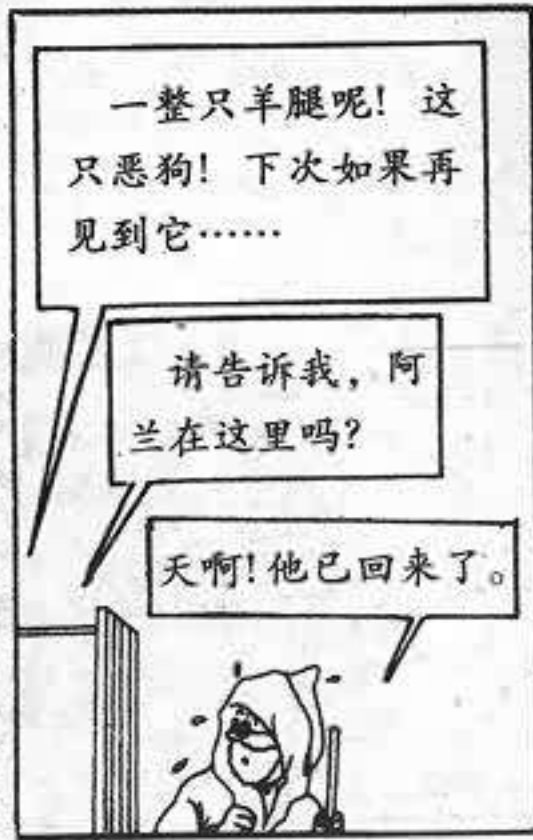 一整只羊腿呢！这
只恶狗！下次如果再
见到它……
请告诉我，阿
兰在这里吗？
天啊！他已回来了。